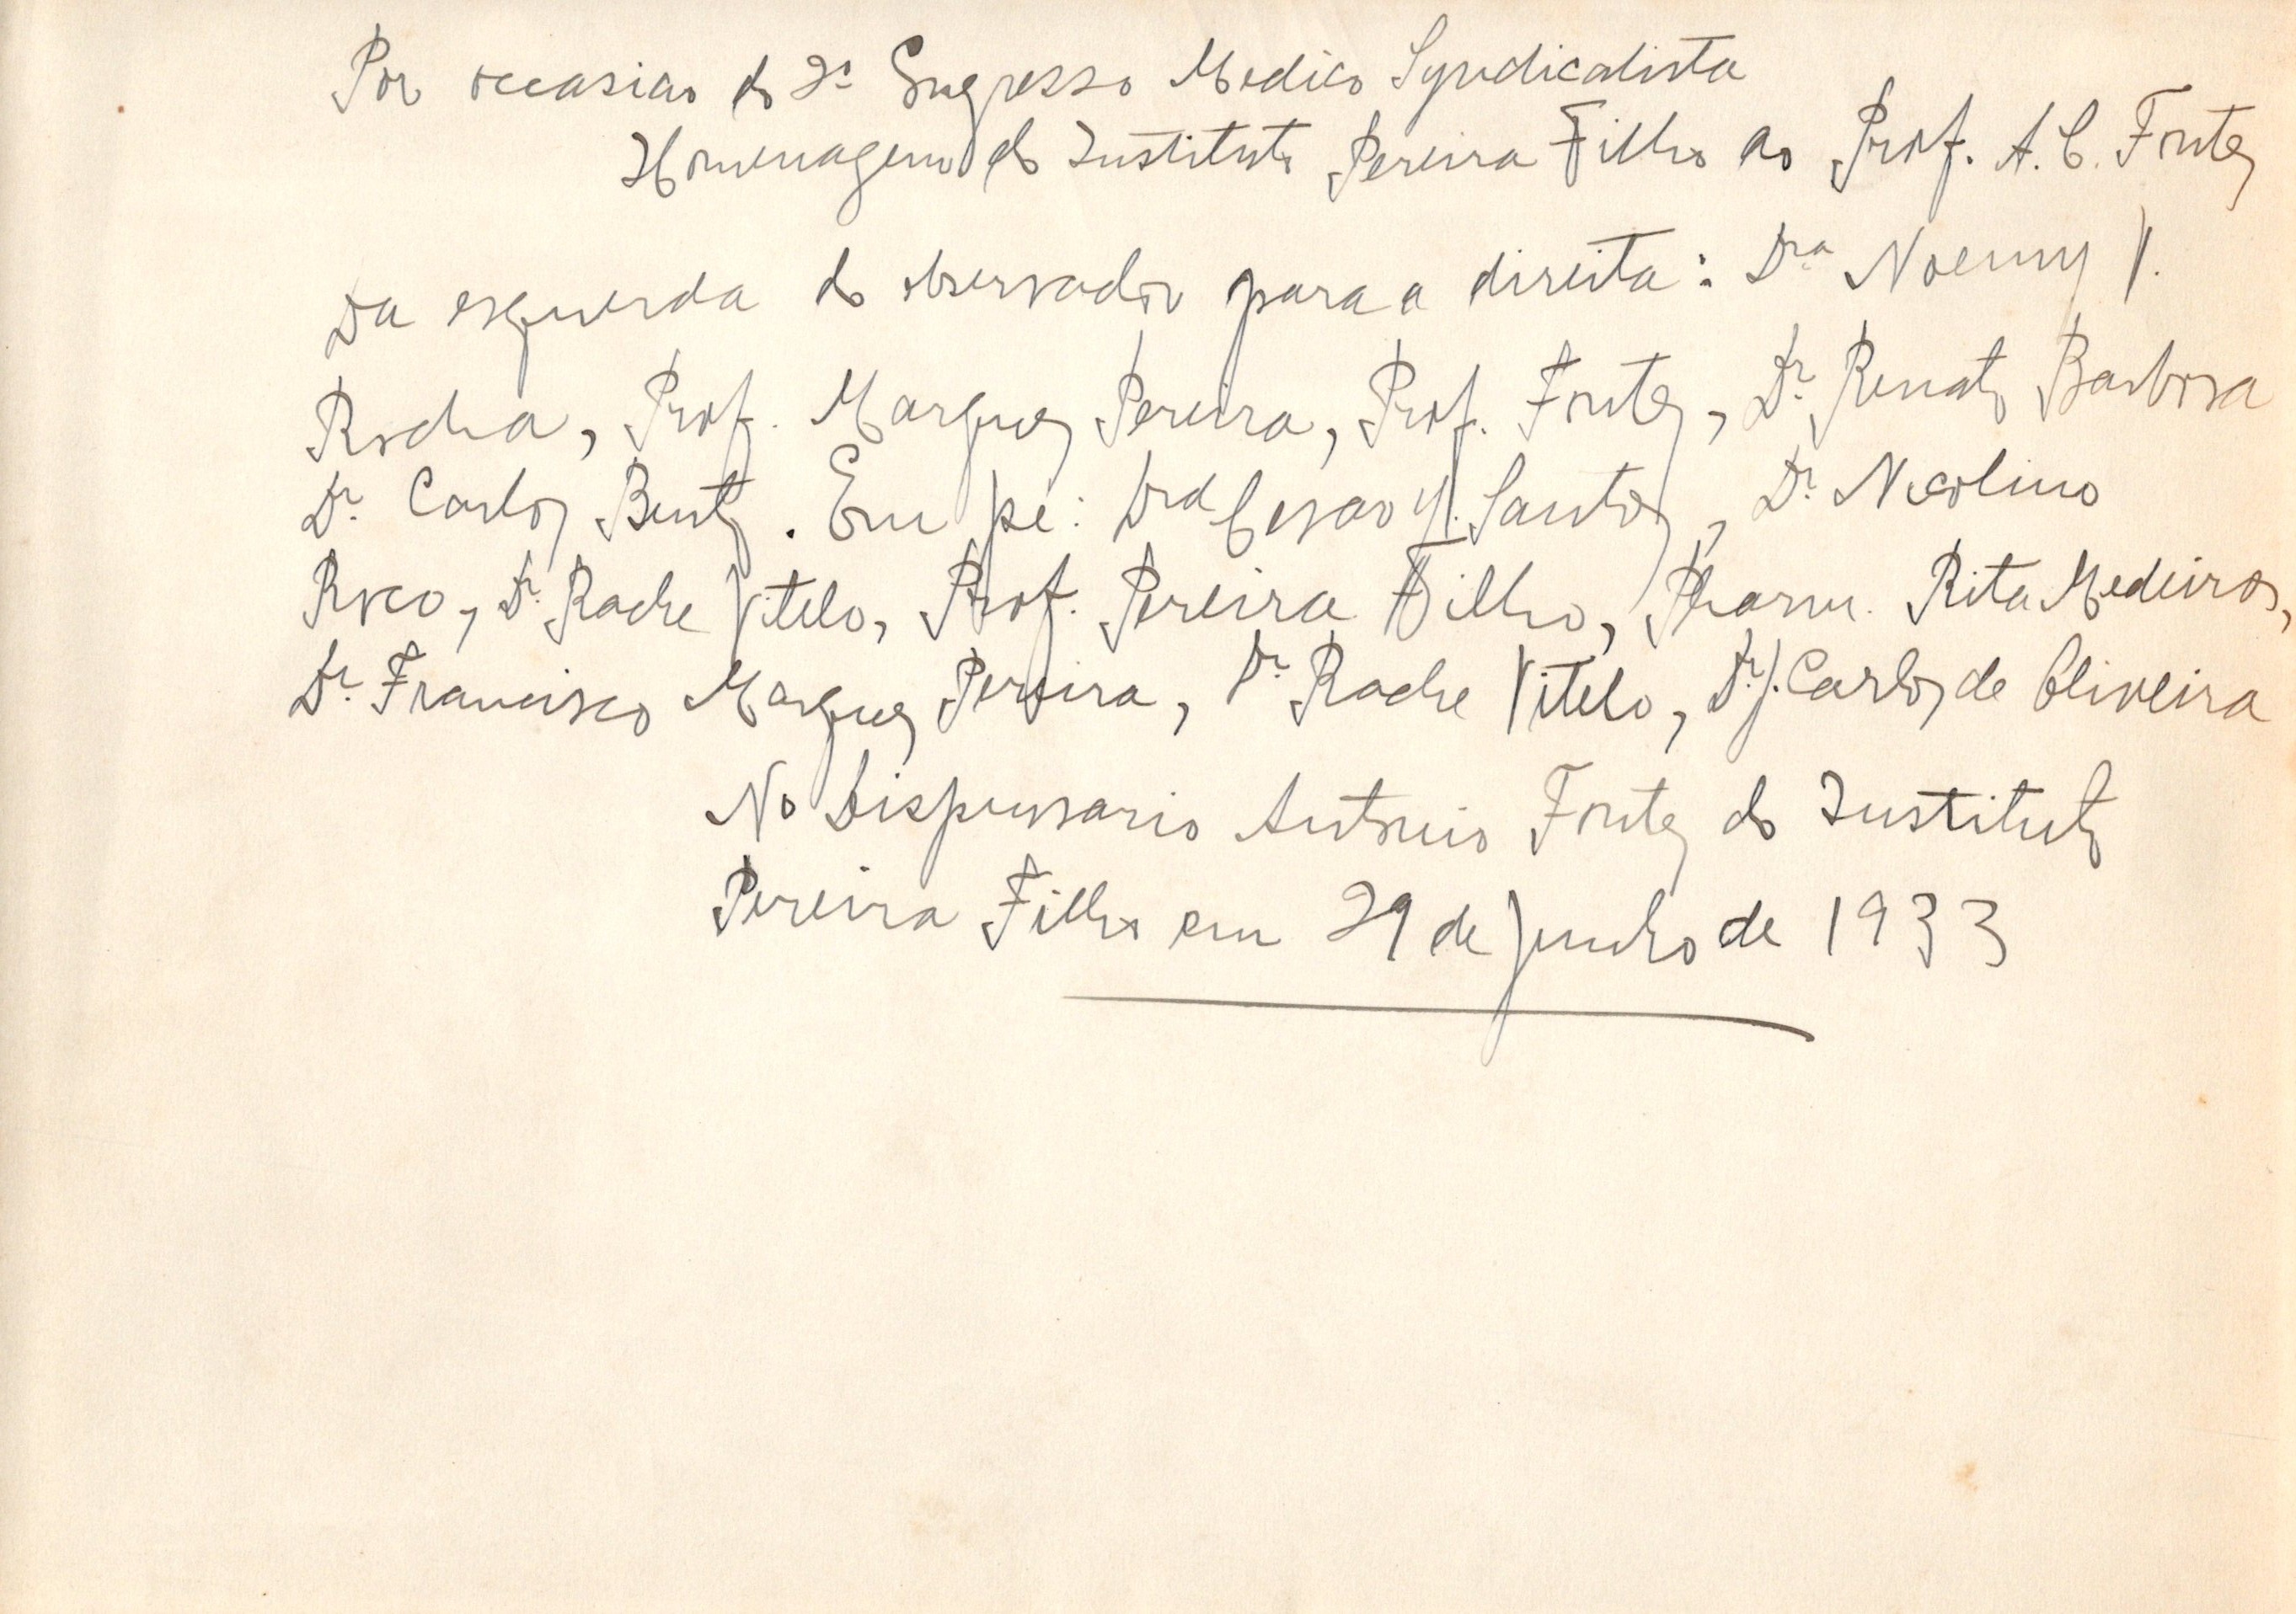 Por occasião do 2º Congresso Medico Syndicalista
Homenagem do Instituto Pereira Filho ao Prof. A. C. Fontes
Da esquerda do observador para a direita: Dra Noemy V.
Rocha, Prof. Marques Pereira, Prof. Fontes, Dr. Renato Barbosa
Dr. Carlos Bento. Em pé: Cesar Santos, Dr. Nicolino
Rocco, Dr. Rache Vitelo, Prof. Pereira Filho, Pharm. Rita Medeiros,
Dr. Francisco Marques Pereira, Dr. Rache Vitelo, Dr. J. Carlos de Oliveira
No Dispensario Antonio Fontes do Instituto
Pereira Filho em 29 de Junho de 1933